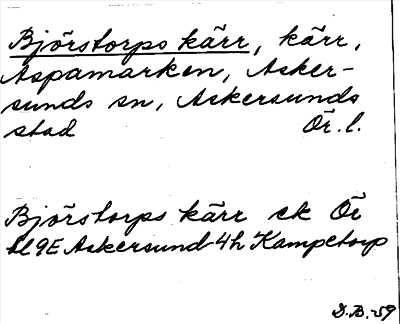 Björstorps kärr, kärr,
Aspamarken, Asker-
sunds sn, Askersunds
stad Ör. l.
Björstorps kärr ek Ör
bl 9E Askersund 4h Kampetorp
D.B.-59